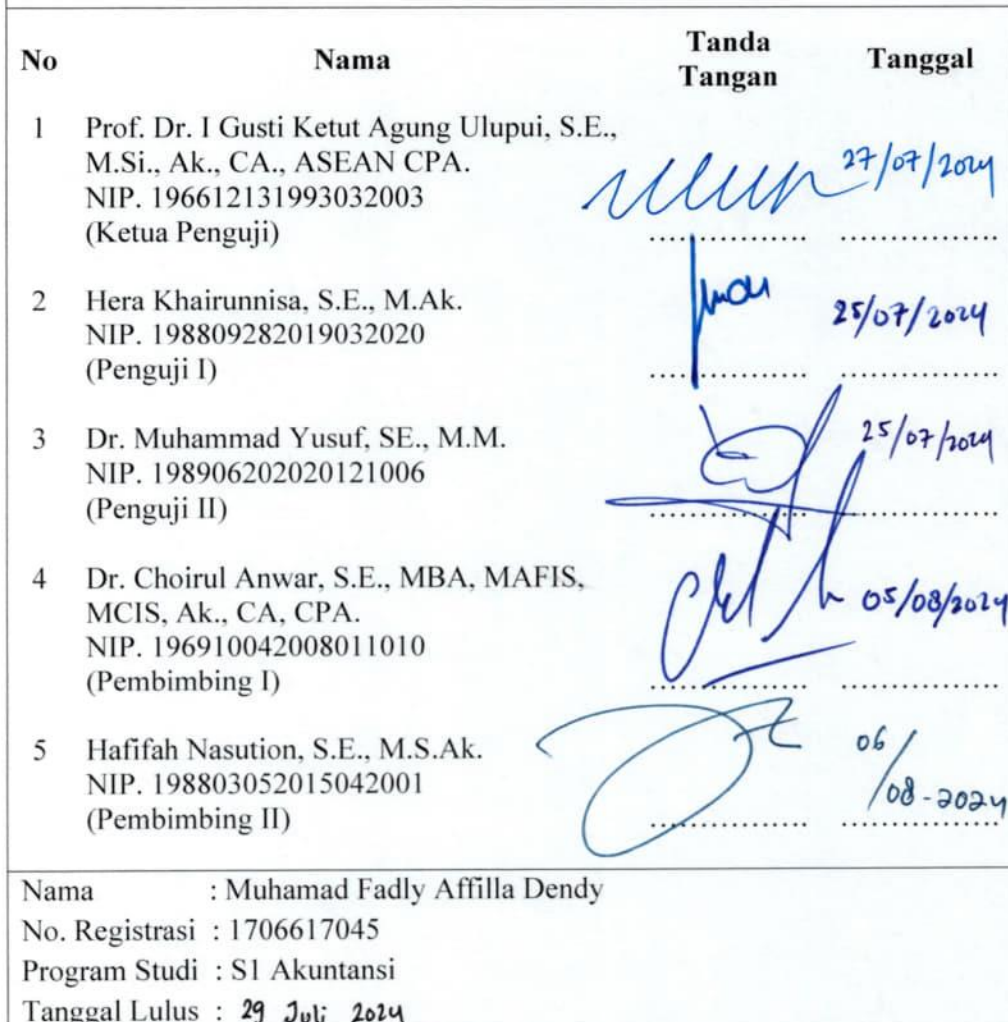 No Nama Tanda Tangan Tanggal
1 Prof. Dr. I Gusti Ketut Agung Ulupui, S.E.,
M.Si., Ak., CA., ASEAN CPA.
NIP. 196612131993032003 27/07/2024
(Ketua Penguji) ................ ................
2 Hera Khairunnisa, S.E., M.Ak.
NIP. 198809282019032020 25/07/2024
(Penguji I) ................ ................
3 Dr. Muhammad Yusuf, SE., M.M. 25/07/2024
NIP. 198906202020121006
(Penguji II) ................ ................
4 Dr. Choirul Anwar, S.E., MBA, MAFIS,
MCIS, Ak., CA, CPA. 05/08/2024
NIP. 196910042008011010
(Pembimbing I) ................ ................
5 Hafifah Nasution, S.E., M.S.Ak. 06/
NIP. 198803052015042001 /08-2024
(Pembimbing II) ................ ................
Nama : Muhamad Fadly Affilla Dendy
No. Registrasi : 1706617045
Program Studi : S1 Akuntansi
Tanggal Lulus : 29 Juli 2024